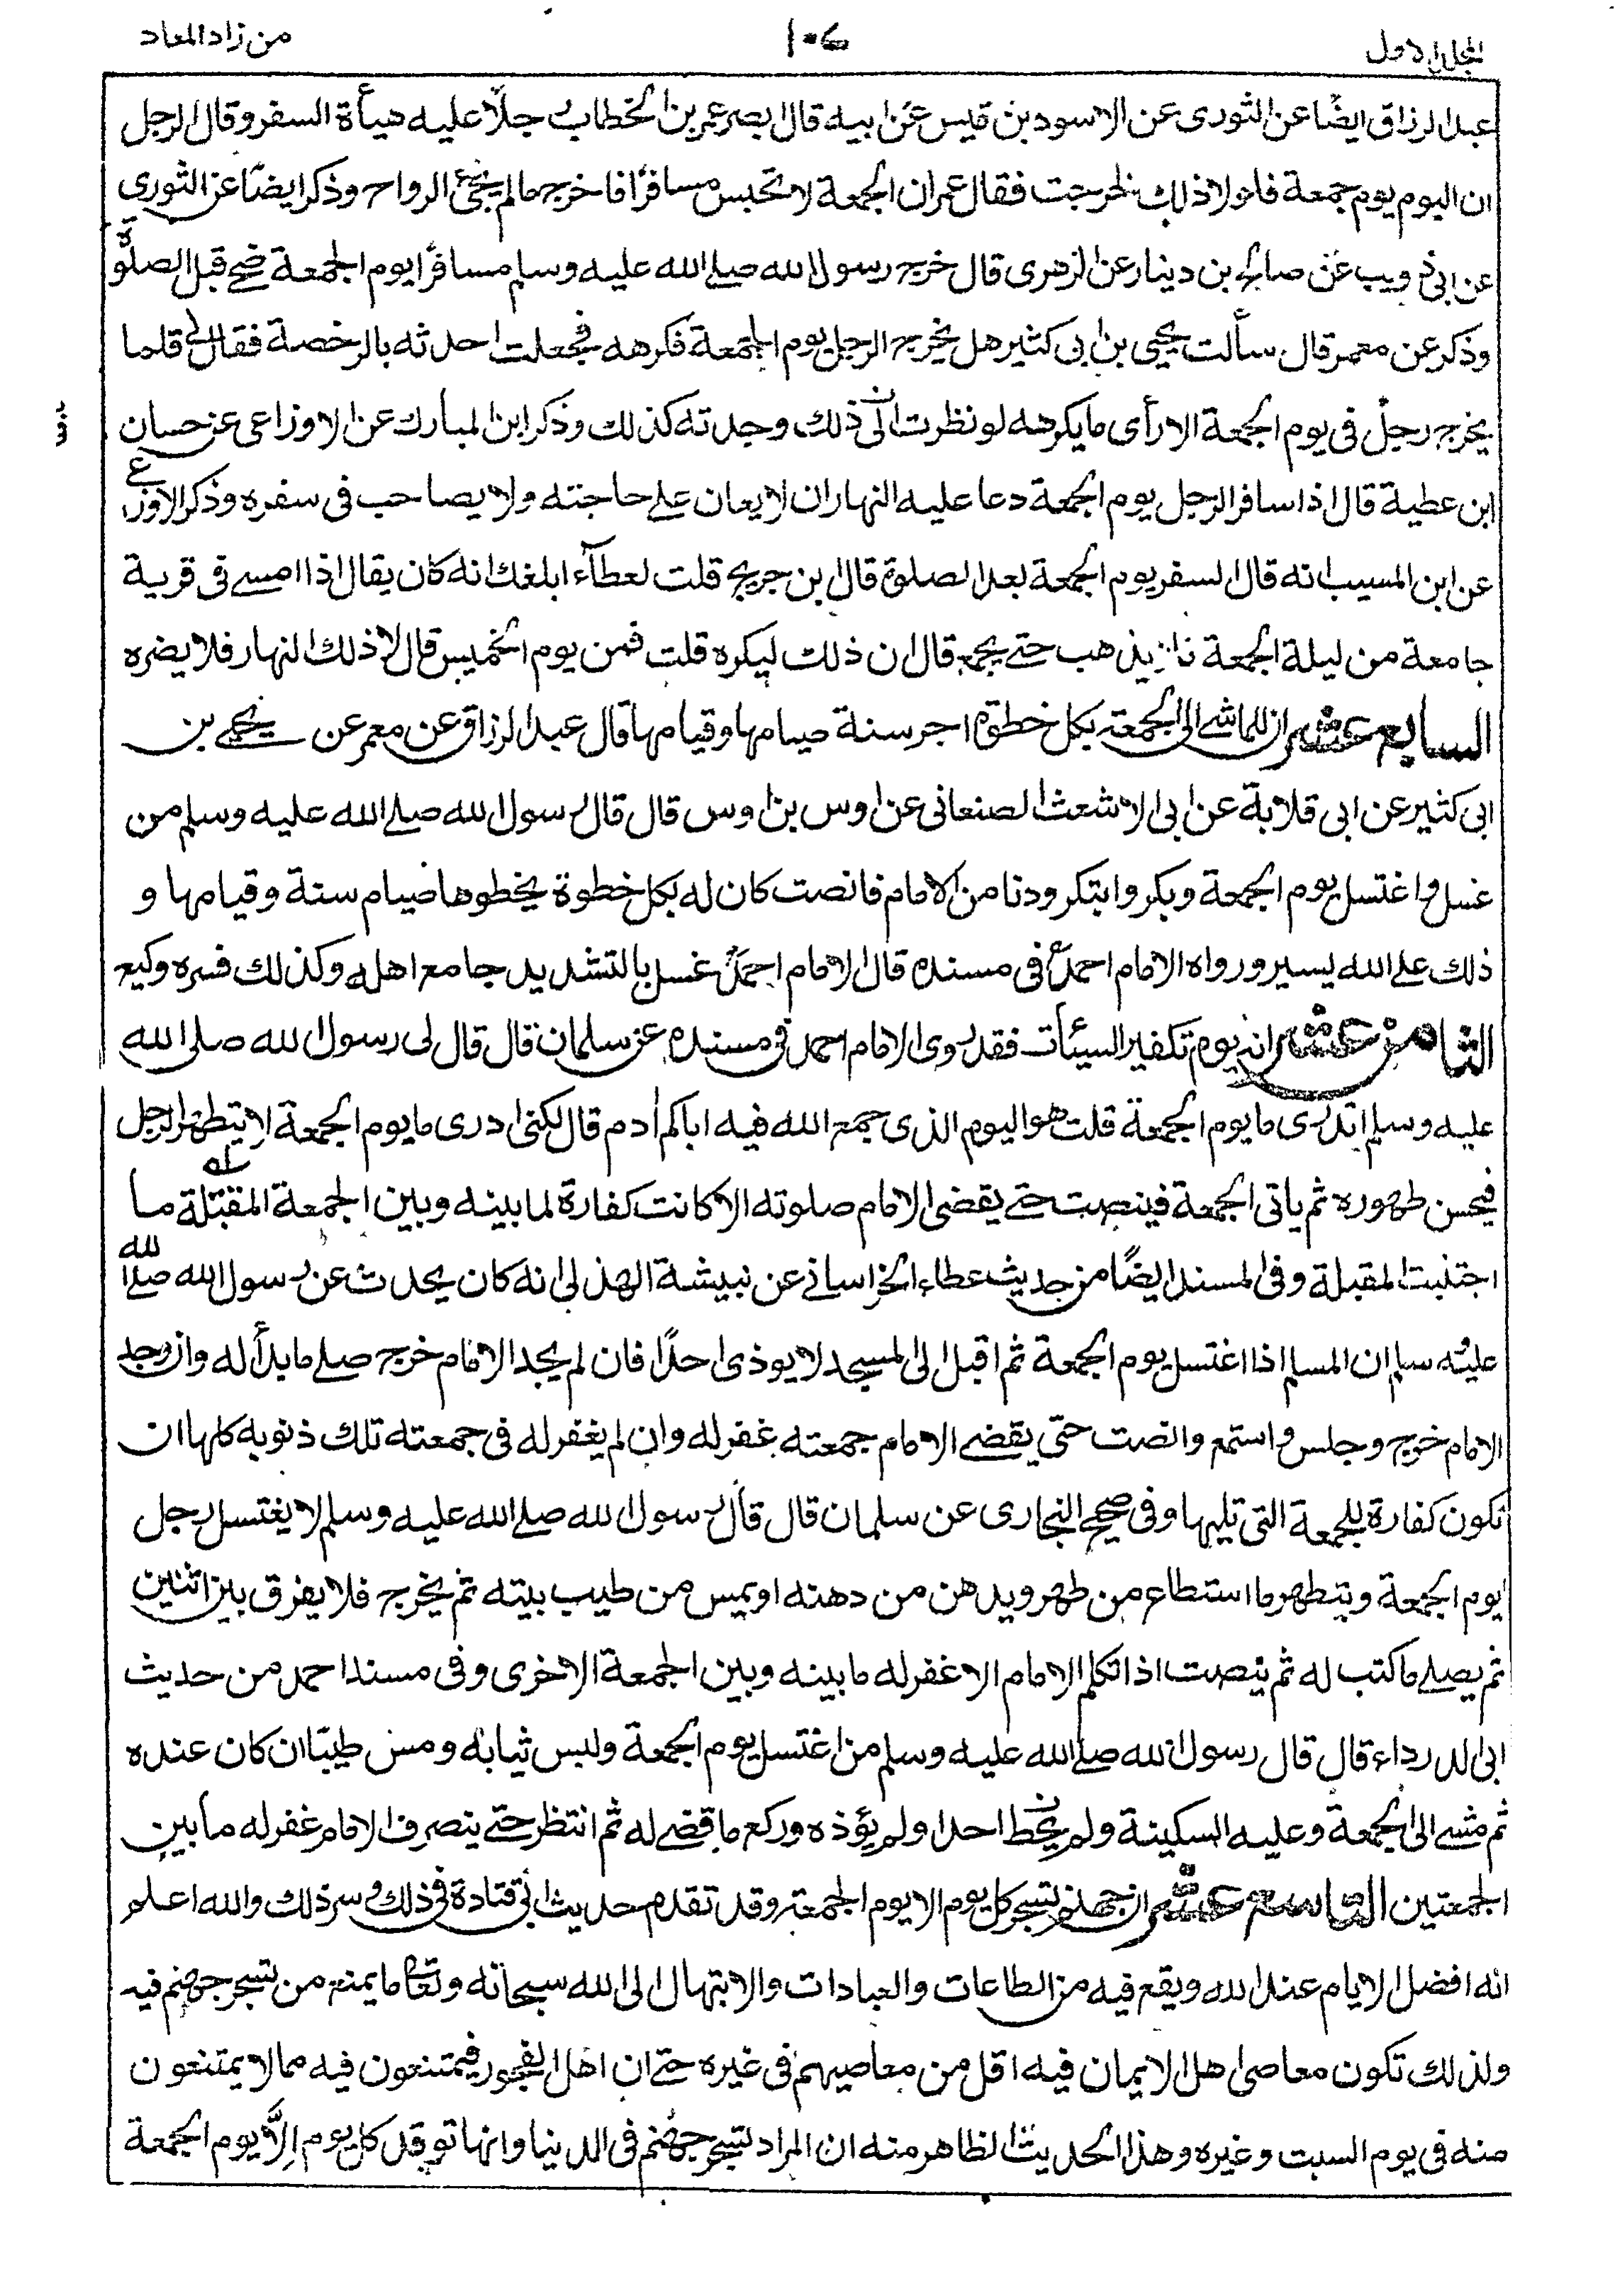 المجلد الاول
١٠٤
من زاد المعاد
عبد الرزاق ايضًا عن الثورى عن الاسود بن قيس عن ابيه قال ابصر عمر بن الخطاب رجلًا عليه هيأة السفر وقال الرجل
ان اليوم يوم جمعة فلولا ذلك لخرجت فقال عمر ان الجمعة لا تحبس مسافرًا فاخرج مالم يجئ الرواح وذكر ايضًا عن الثورى
عن ابى ذويب عن صالح بن دينار عن الزهرى قال خرج رسول الله صلے الله عليه وسلم مسافرًا يوم الجمعة ضحے قبل الصلوة
وذكر عن معمر قال سألت يحيى بن ابى كثير هل يخرج الرجل يوم الجمعة فكرهه فجعلت احدثه بالرخصة فقال لى قلما
يخرج رجل فى يوم الجمعة الا رأى مايكرهه لو نظرت الى ذلك وجدته كذلك وذكر ابن المبارك عن الاوزاعى عن حسان
ابن عطية قال اذا سافر الرجل يوم الجمعة دعا عليه النهار ان لا يعان علے حاجته ولا يصاحب فى سفره وذكر الاوزاعى
عن ابن المسيب انه قال السفر يوم الجمعة بعد الصلوة قال ابن جريج قلت لعطآء ابلغك انه كان يقال اذا امسے فى قرية
جامعة من ليلة الجمعة فلا يذهب حتے يجمع قال ان ذلك ليكره قلت فمن يوم الخميس قال لا ذلك النهار فلا يضره
السابع عشر ان للماشے الى الجمعة بكل خطوة اجر سنة صيامها وقيامها قال عبد الرزاق عن معمر عن يحيے بن
ابى كثير عن ابى قلابة عن ابى الاشعث الصنعانى عن اوس بن اوس قال قال رسول الله صلے الله عليه وسلم من
غسل واغتسل يوم الجمعة وبكر وابتكر ودنا من الامام فانصت كان له بكل خطوة يخطوها صيام سنة وقيامها و
ذلك علے الله يسير ورواه الامام احمد فى مسنده قال الامام احمد غسل بالتشديد جامع اهله وكذلك فسره وكيع
الثامن عشر انه يوم تكفير السيئات فقد روى الامام احمد فى مسنده عن سلمان قال قال لى رسول الله صلى الله
عليه وسلم اتدرى ما يوم الجمعة قلت هو اليوم الذى جمع الله فيه اباكم ادم قال لكنى ادرى ما يوم الجمعة لا يتطهر الرجل
فيحسن طهوره ثم ياتى الجمعة فينصت حتے يقضى الامام صلوته الا كانت كفارة له لما بينه وبين الجمعة المقبلة ما
اجتنبت المقبلة وفى المسند ايضًا من حديث عطاء الخراسانے عن نبيشة الهذلى انه كان يحدث عن رسول الله صلے الله
عليه وسلم ان المسلم اذا اغتسل يوم الجمعة ثم اقبل الى المسجد لا يوذى احدًا فان لم يجد الامام خرج صلے ما بدأ له وان وجد
الامام خرج وجلس واستمع وانصت حتى يقضے الامام جمعته غفر له وان لم يغفر له فى جمعته تلك ذنوبه كلها ان
تكون كفارة للجمعة التى تليها وفى صحيح البخارى عن سلمان قال قال رسول الله صلے الله عليه وسلم لا يغتسل رجل
يوم الجمعة ويتطهر ما استطاع من طهر ويدهن من دهنه او يمس من طيب بيته ثم يخرج فلا يفرق بين اثنين
ثم يصلے ما كتب له ثم ينصت اذا تكلم الامام الا غفر له ما بينه وبين الجمعة الاخرى وفى مسند احمد من حديث
ابى الدرداء قال قال رسول الله صلے الله عليه وسلم من اغتسل يوم الجمعة ولبس ثيابه ومس طيبًا ان كان عنده
ثم مشے الى الجمعة وعليه السكينة ولم يتخط احدا ولم يؤذه وركع ما قضے له ثم انتظر حتے ينصرف الامام غفر له ما بين
الجمعتين التاسع عشر ان جهنم تسجر كل يوم الا يوم الجمعة وقد تقدم حديث ابى قتادة فى ذلك وسر ذلك والله اعلم
انه افضل الايام عند الله ويقع فيه من الطاعات والعبادات والابتهال الى الله سبحانه وتعالى ما يمنع من تسجر جهنم فيه
ولذلك تكون معاصى اهل الايمان فيه اقل من معاصيهم فى غيره حتے ان اهل الفجور فيمتنعون فيه مما لا يمتنعون
منه فى يوم السبت وغيره وهذا الحديث الظاهر منه ان المراد تسجر جهنم فى الدنيا وانها توقد كل يوم إلَّا يوم الجمعة